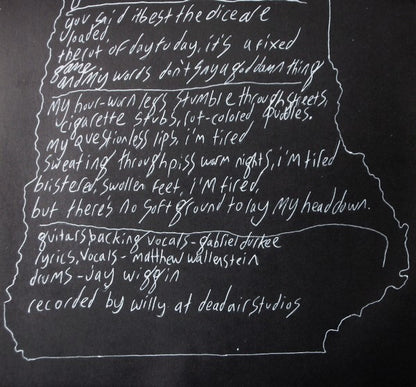 you said it best the dice are
loaded,
the rut of day to day, it's a fixed
game
and my words don't say a god damn thing
my hour-worn legs stumble through streets,
cigarette stubs, rot-colored puddles.
my questionless lips, i'm tired
sweating through piss warm nights, i'm tired
blistered, swollen feet, i'm tired,
but theres no soft ground to lay my head down.
guitars backing vocals - gabriel durkee
lyrics, vocals - matthew wallenstein
drums - jay wiggin
recorded by willy at dead air studios